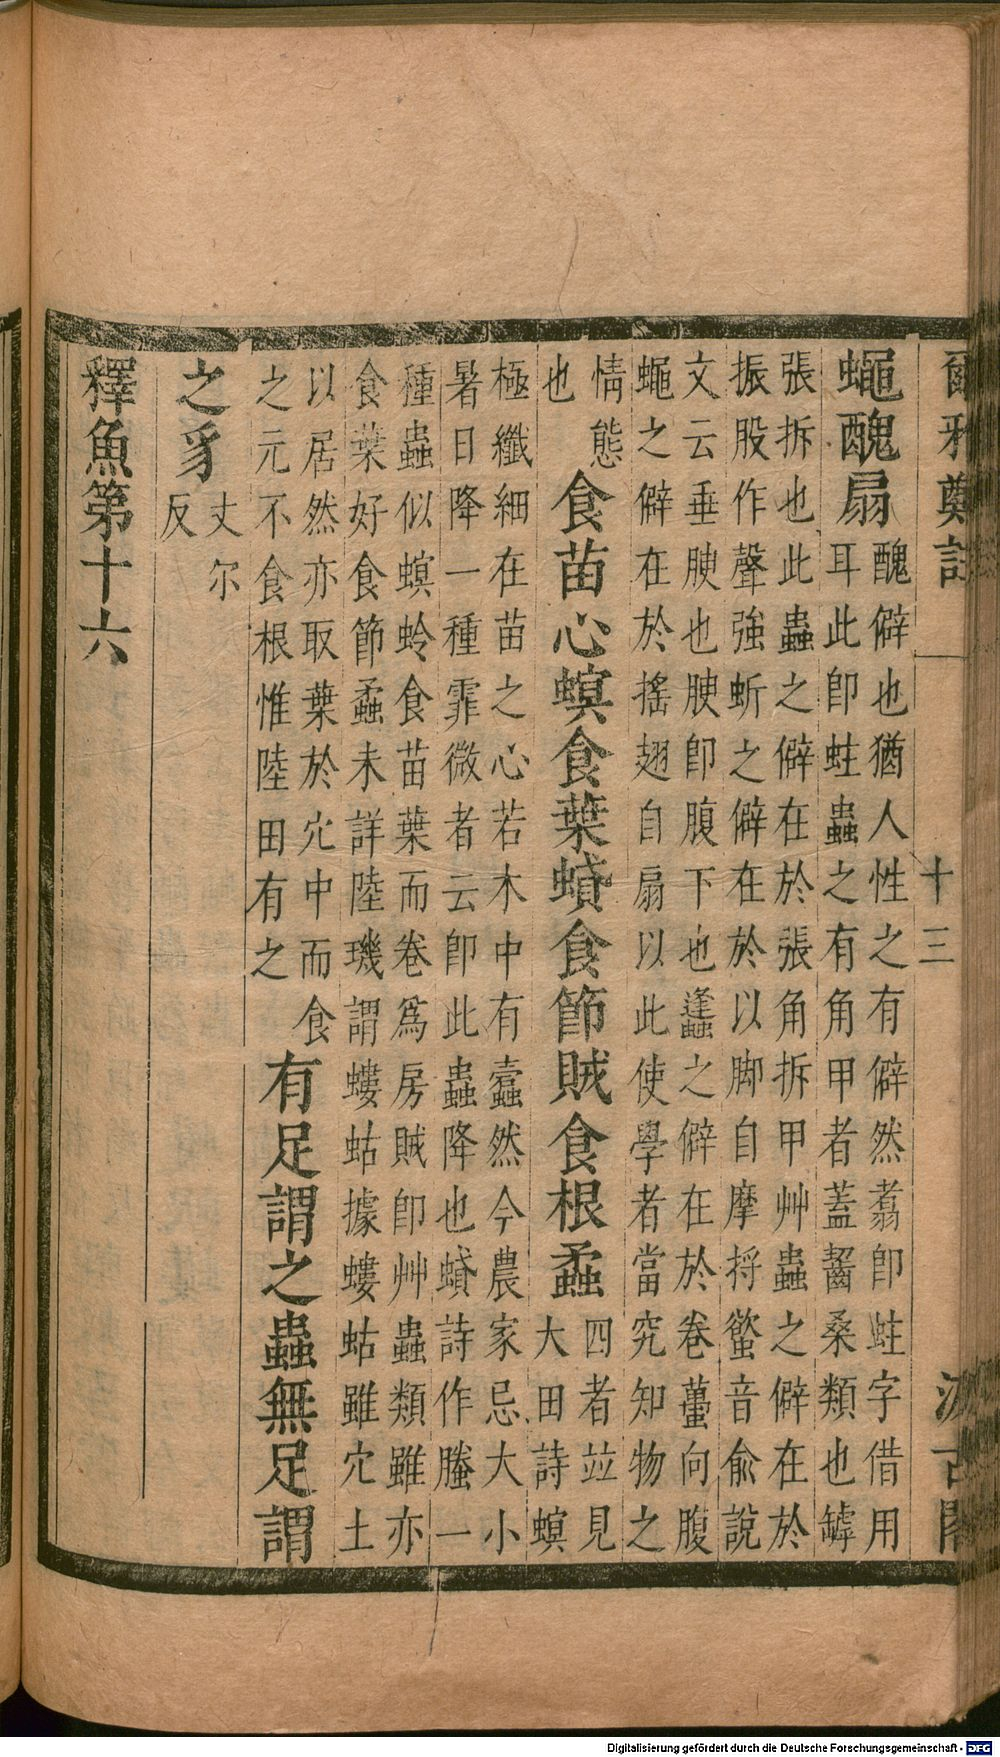 爾雅鄭註 十三 汲古閣
蠅醜扇
醜僻也猶人性之有僻然翥卽蛀字借用
耳此卽蛀蟲之有角甲者蓋齧桑類也罅
張拆也此蟲之僻在於張角拆甲艸蟲之僻在於
振股作聲強蚚之僻在於以脚自摩捋螸音俞說
文云垂腴也腴卽腹下也蠭之僻在於卷蠆向腹
蠅之僻在於搖翅自扇以此使學者當究知物之
情態
也
食苗心螟食葉蟘食節賊食根蟊
四者竝見
大田詩螟
極纖細在苗之心若木中有蠹然今農家忌大小
暑日降一種霏微者云卽此蟲降也蟘詩作螣一
種蟲似螟蛉食苗葉而卷爲房賊卽艸蟲類雖亦
食葉好食節蟊未詳陸璣謂螻蛄據螻蛄雖穴土
以居然亦取葉於穴中而食
之元不食根惟陸田有之
有足謂之蟲無足謂
之豸
丈尔
反
釋魚第十六
Digitalisierung gefördert durch die Deutsche Forschungsgemeinschaft - DFG